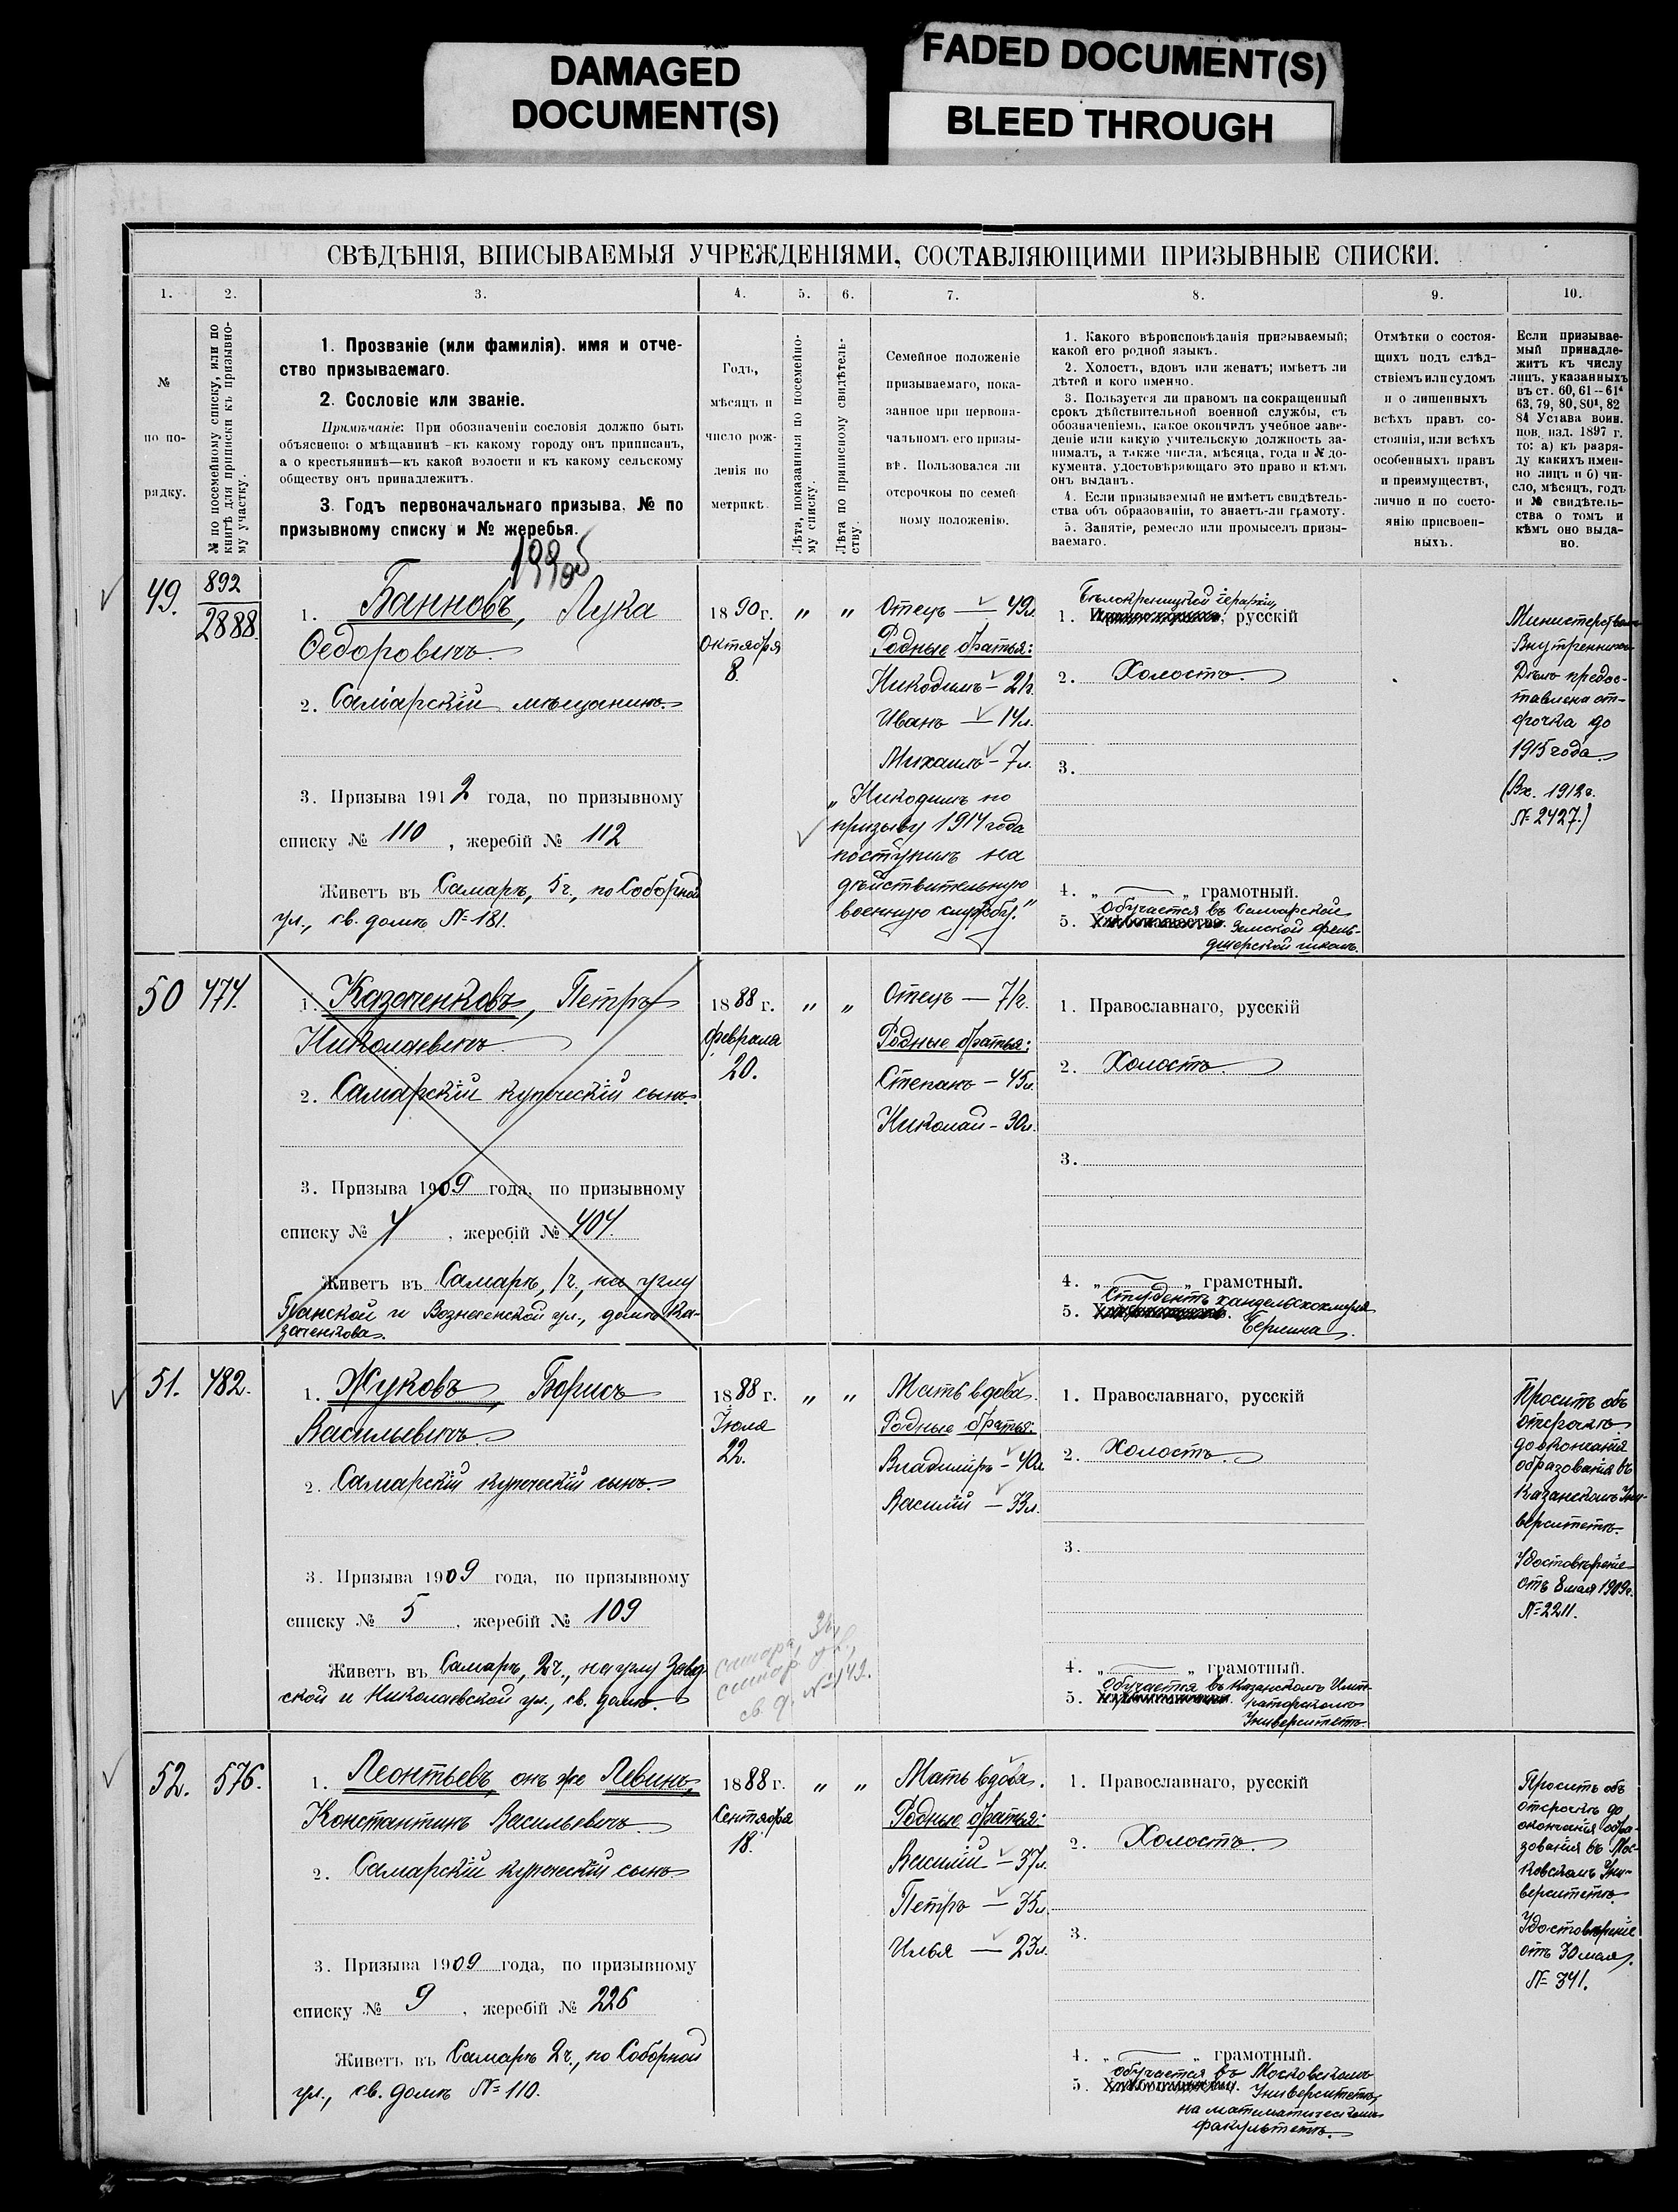 DAMAGED
DOCUMENT(S)
FADED DOCUMENT(S)
BLEED THROUGH
СВѢДѢНІЯ, ВПИСЫВАЕМЫЯ УЧРЕЖДЕНІЯМИ, СОСТАВЛЯЮЩИМИ ПРИЗЫВНЫЕ СПИСКИ.
1. 2. 3. 4. 5. 6. 7. 8. 9. 10.
№
по по-
рядку.
№ по посемейному списку, или по
книгѣ для приписки къ призывно-
му участку.
1. Прозваніе (или фамилія). имя и отче-
ство призываемаго.
2. Сословіе или званіе.
Примѣчаніе: При обозначеніи сословія должно быть
объяснено: о мѣщанинѣ—къ какому городу онъ приписанъ,
а о крестьянинѣ—къ какой волости и къ какому сельскому
обществу онъ принадлежитъ.
3. Годъ первоначальнаго призыва, № по
призывному списку и № жеребья.
Годъ,
мѣсяцъ и
число рож-
денія по
метрикѣ.
Лѣта, показанныя по посемейно-
му списку.
Лѣта по приписному свидѣтель-
ству.
Семейное положеніе
призываемаго, пока-
занное при первона-
чальномъ его призы-
вѣ. Пользовался ли
отсрочкою по семей-
ному положенію.
1. Какого вѣроисповѣданія призываемый;
какой его родной языкъ.
2. Холостъ, вдовъ или женатъ; имѣетъ ли
дѣтей и кого именно.
3. Пользуется ли правомъ на сокращенный
срокъ дѣйствительной военной службы, съ
обозначеніемъ, какое окончилъ учебное заве-
деніе или какую учительскую должность за-
нималъ, а также числа, мѣсяца, года и № до-
кумента, удостовѣряющаго это право и кѣмъ
онъ выданъ.
4. Если призываемый не имѣетъ свидѣтель-
ства объ образованіи, то знаетъ-ли грамоту.
5. Занятіе, ремесло или промыселъ призы-
ваемаго.
Отмѣтки о состоя-
щихъ подъ слѣд-
ствіемъ или судомъ
и о лишенныхъ
всѣхъ правъ со-
стоянія, или всѣхъ
особенныхъ правъ
и преимуществъ,
лично и по состо-
янію присвоен-
ныхъ.
Если призывае-
мый принадле-
житъ къ числу
лицъ, указанныхъ
въ ст. 60, 61—61⁴
63, 79, 80, 80¹, 82
84 Устава воин.
пов. изд. 1897 г.
то: а) къ разря-
ду какихъ имен-
но лицъ и б) чи-
сло, мѣсяцъ, годъ
и № свидѣтель-
ства о томъ и
кѣмъ оно выда-
но.
49.
892
2888.
1. Банновъ, Лука
Федоровичъ.
2. Самарскій мѣщанинъ.
3. Призыва 1912 года, по призывному
списку № 110, жеребій № 112
Живетъ въ Самарѣ, 5ч., по Соборной
ул., св. домъ № 181.
1890 г.
Октября
8.
„ „
Отецъ — 49л.
Родные братья:
Никодимъ — 21г.
Иванъ — 14л.
Михаилъ — 7л.
„Никодимъ по
призыву 1914 года
поступилъ на
дѣйствительную
военную службу."
Бѣлокриницкой іерархіи
1. , русскій
2. Холостъ.
3.
4. „ — „ грамотный.
Обучается въ Самарской
5. Хлѣбопашество. Земской фель-
дшерской школѣ.
Министерствомъ
Внутреннихъ
Дѣлъ предос-
тавлена от-
срочка до
1915 года.
(Вх. 1912г.
№ 2427.)
50 474.
1. Казаченковъ, Петръ
Николаевичъ.
2. Самарскій купеческій сынъ.
3. Призыва 1909 года, по призывному
списку № 4, жеребій № 404.
Живетъ въ Самарѣ, 1ч., на углу
и Вознесенской ул., домъ Ка-
заченкова.
1888 г.
Февраля
20.
„ „
Отецъ — 71г.
Родные братья:
Степанъ — 45л.
Николай — 30л.
1. Православнаго, русскій
2. Холостъ.
3.
4. „ — „ грамотный.
Студентъ
5.
Берлина.
51. 482.
1. Жуковъ, Борисъ
Васильевичъ.
2. Самарскій купеческій сынъ.
3. Призыва 1909 года, по призывному
списку № 5, жеребій № 109
Живетъ въ Самарѣ, 2ч., на углу Завод-
ской и Николаевской ул., св. домъ.
1888 г.
Іюля
22.
„ „
св. д. № 142.
Мать вдова.
Родные братья:
Владиміръ — 40л.
Василій — 33л.
1. Православнаго, русскій
2. Холостъ.
3.
4. „ — „ грамотный.
Обучается въ Казанскомъ Импе-
5. раторскомъ
Университетѣ.
Проситъ объ
отсрочкѣ
до окончанія
образованія въ
Казанскомъ Уни-
верситетѣ.
Удостовѣреніе
отъ 8 мая 1909г.
№ 2211.
52. 576.
1. Леонтьевъ, онъ же Левинъ,
Константинъ Васильевичъ.
2. Самарскій купеческій сынъ.
3. Призыва 1909 года, по призывному
списку № 9, жеребій № 226
Живетъ въ Самарѣ 2ч., по Соборной
ул., св. домъ № 110.
1888 г.
Сентября
18.
„ „
Мать вдова.
Родные братья:
Василій — 37л.
Петръ — 35л.
Илья — 23л.
1. Православнаго, русскій
2. Холостъ.
3.
4. „ — „ грамотный.
Обучается въ Московскомъ
5. Университетѣ,
на математическомъ
факультетѣ.
Проситъ объ
отсрочкѣ до
окончанія обра-
зованія въ Мос-
ковскомъ Уни-
верситетѣ.
Удостовѣреніе
отъ 30 мая,
№ 341.